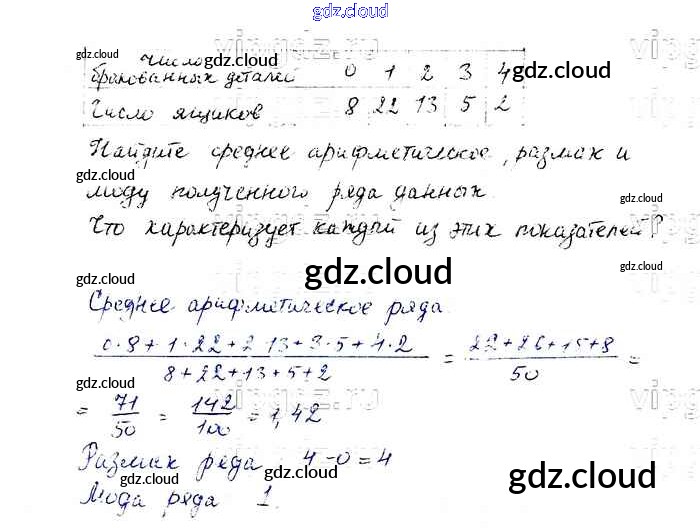 gdz.cloud
Число
бракованных деталей 0 1 2 3 4
Число ящиков 8 22 13 5 2
Найдите среднее арифметическое, размах и
моду полученного ряда данных.
Что характеризует каждый из этих показателей?
gdz.cloud
Среднее арифметическое ряда
0·8+1·22+2·13+3·5+4·2 / 8+22+13+5+2 = 22+26+15+8 / 50 =
= 71/50 = 142/100 = 1,42
Размах ряда 4-0=4
Мода ряда 1.
gdz.cloud
gdz.cloud
gdz.cloud
gdz.cloud
gdz.cloud
gdz.cloud
gdz.cloud
gdz.cloud
gdz.cloud